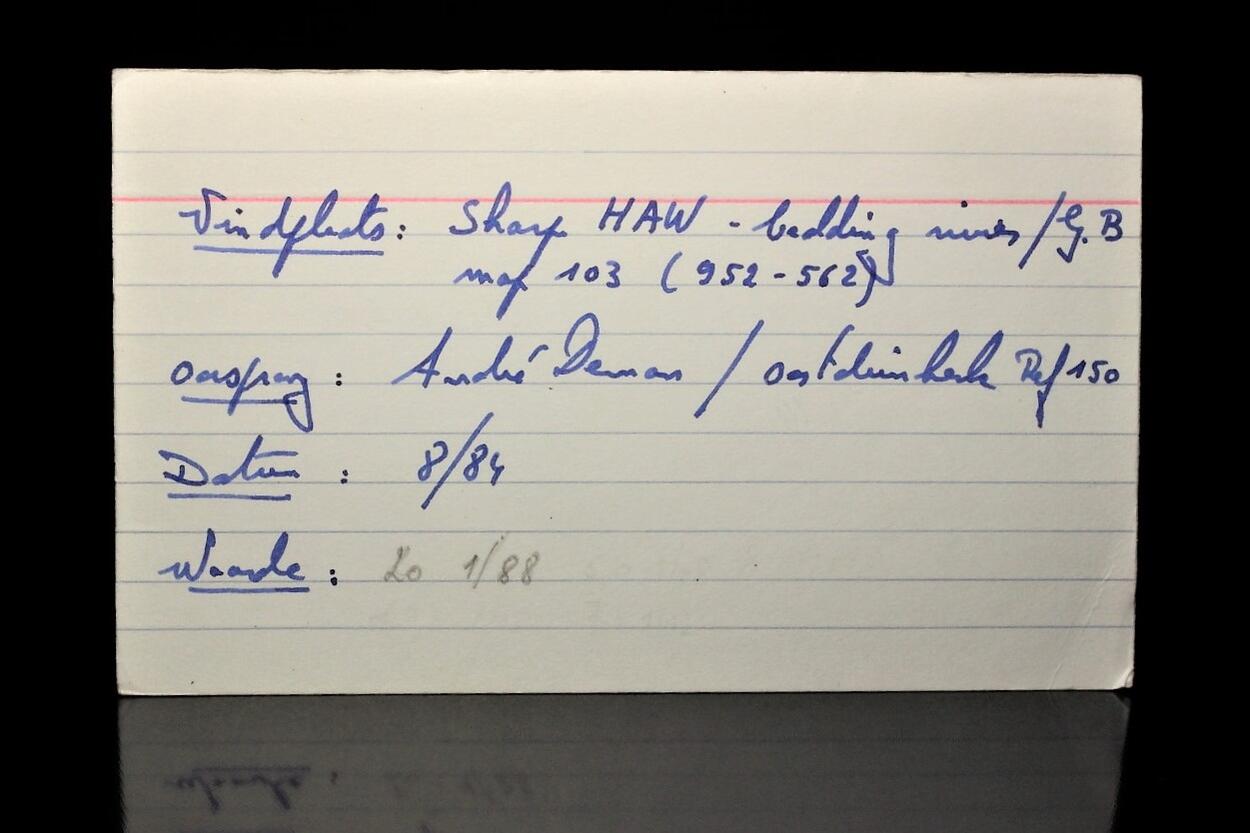 Vindplaats: Sharp HAW - bedding rivier / G.B
map 103 (952-562)
oorsprong: André Deman / oostduinkerk Ref 150
Datum: 8/84
Waarde: 20 1/88